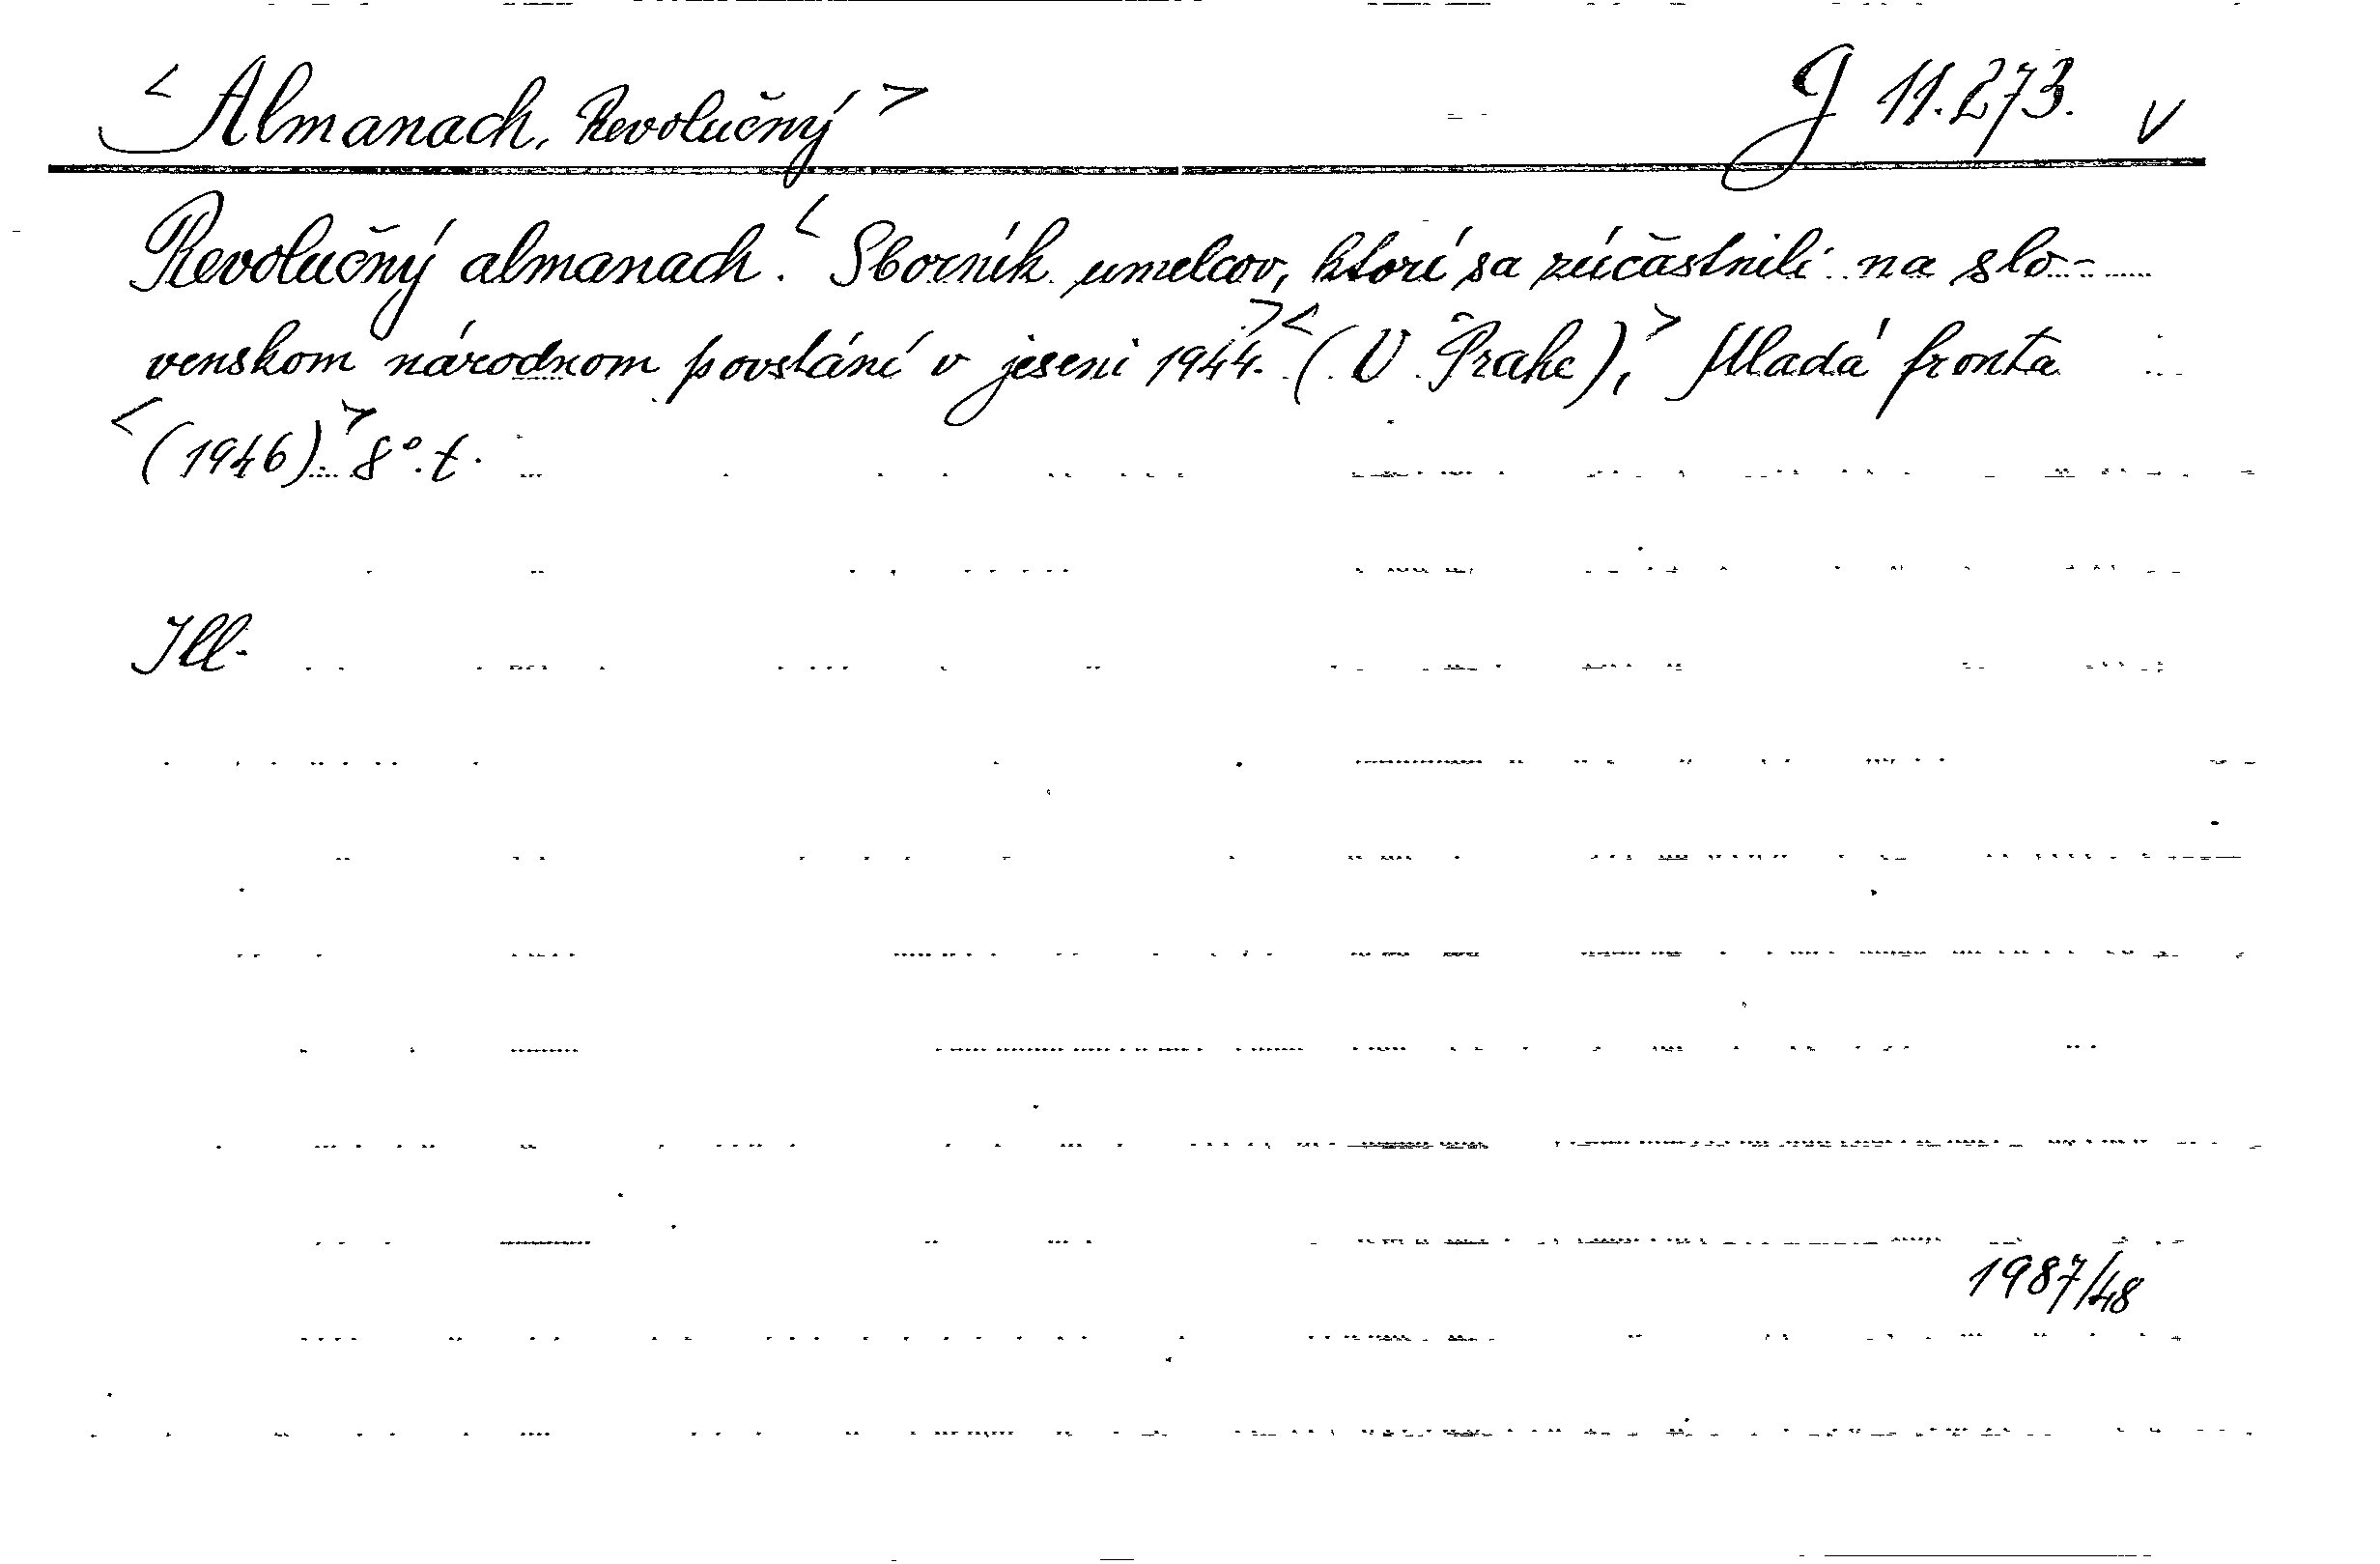 < Almanach, Revolučný > J 11.273. V
Revolučný almanach. < Sborník umelcov, ktorí sa zúčastnili na slo-
venskom národnom povstání v jeseni 1944. > < (V Prahe), > Mladá fronta
< (1946). > 8°. t.
Ill.
1987/48